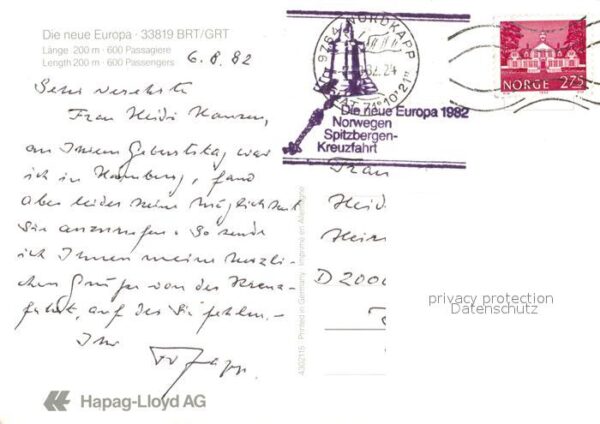 Die neue Europa · 33819 BRT/GRT
Länge 200 m · 600 Passagiere
Length 200 m · 600 Passengers
6.8.82
Sehr verehrte
Frau Heidi Hansen,
an Ihrem Geburtstag war
ich in Hamburg, fand
aber leider keine Möglichkeit
Sie anzurufen. So sende
ich Ihnen meine herzli-
chen Grüße von der Kreuz-
fahrt, auf der Sie fehlen.-
Ihr
Hapag-Lloyd AG
4302115 · Printed in Germany · Imprimé en Allemagne
9764 NORDKAPP
82.24
LAT. 71°10'21"
Die neue Europa 1982
Norwegen
Spitzbergen-
Kreuzfahrt
NORGE 275
Frau
Heidi
D 2000
privacy protection
Datenschutz